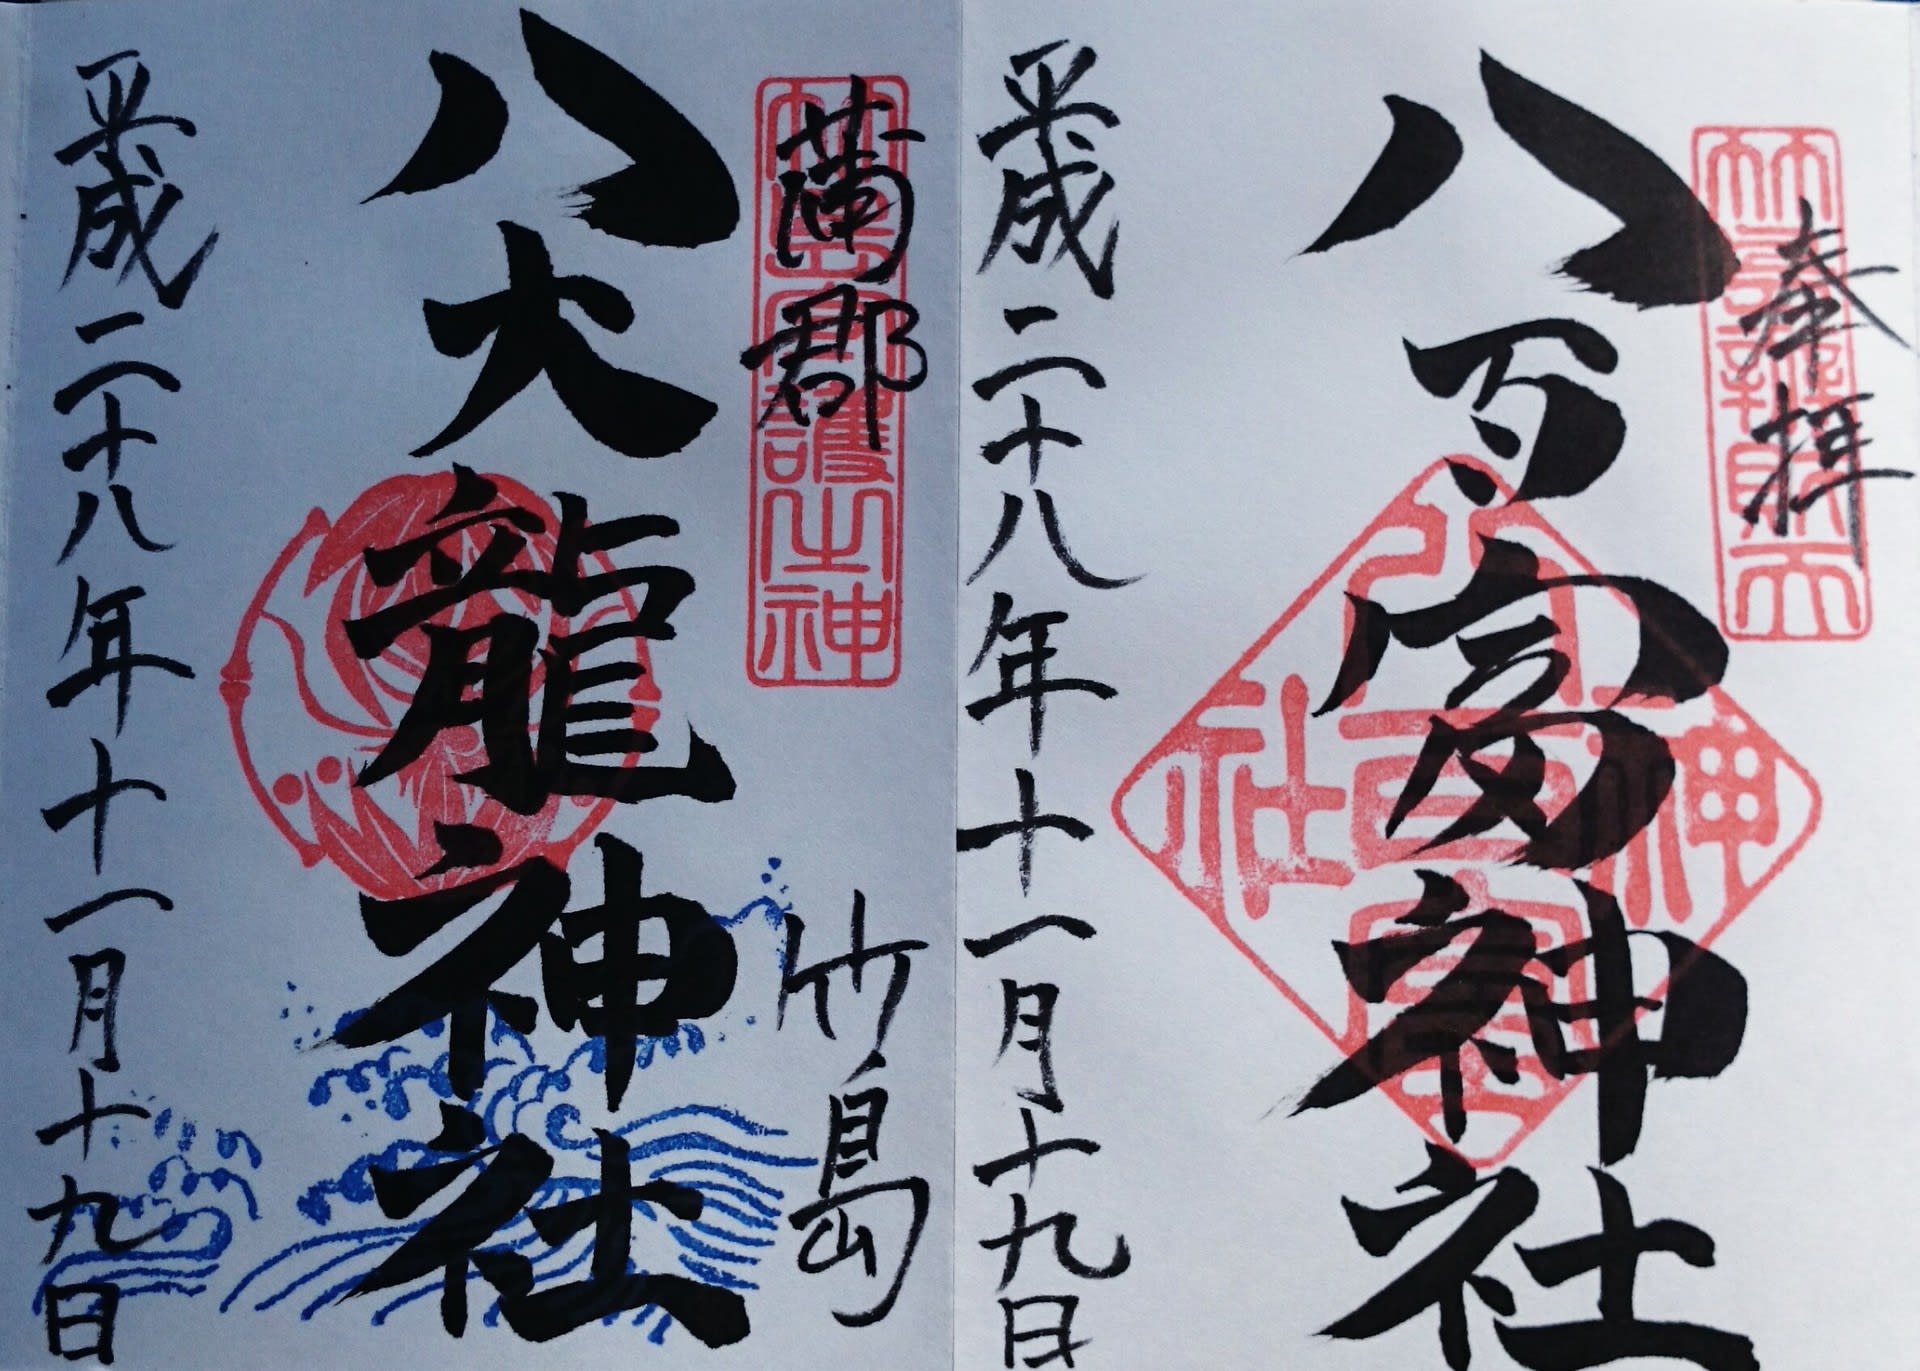 奉拝
竹島辨財天
八百富神社
八百富神社
平成二十八年十一月十九日
蒲郡
竹島
竹島守護之神
八大龍神社
平成二十八年十一月十九日